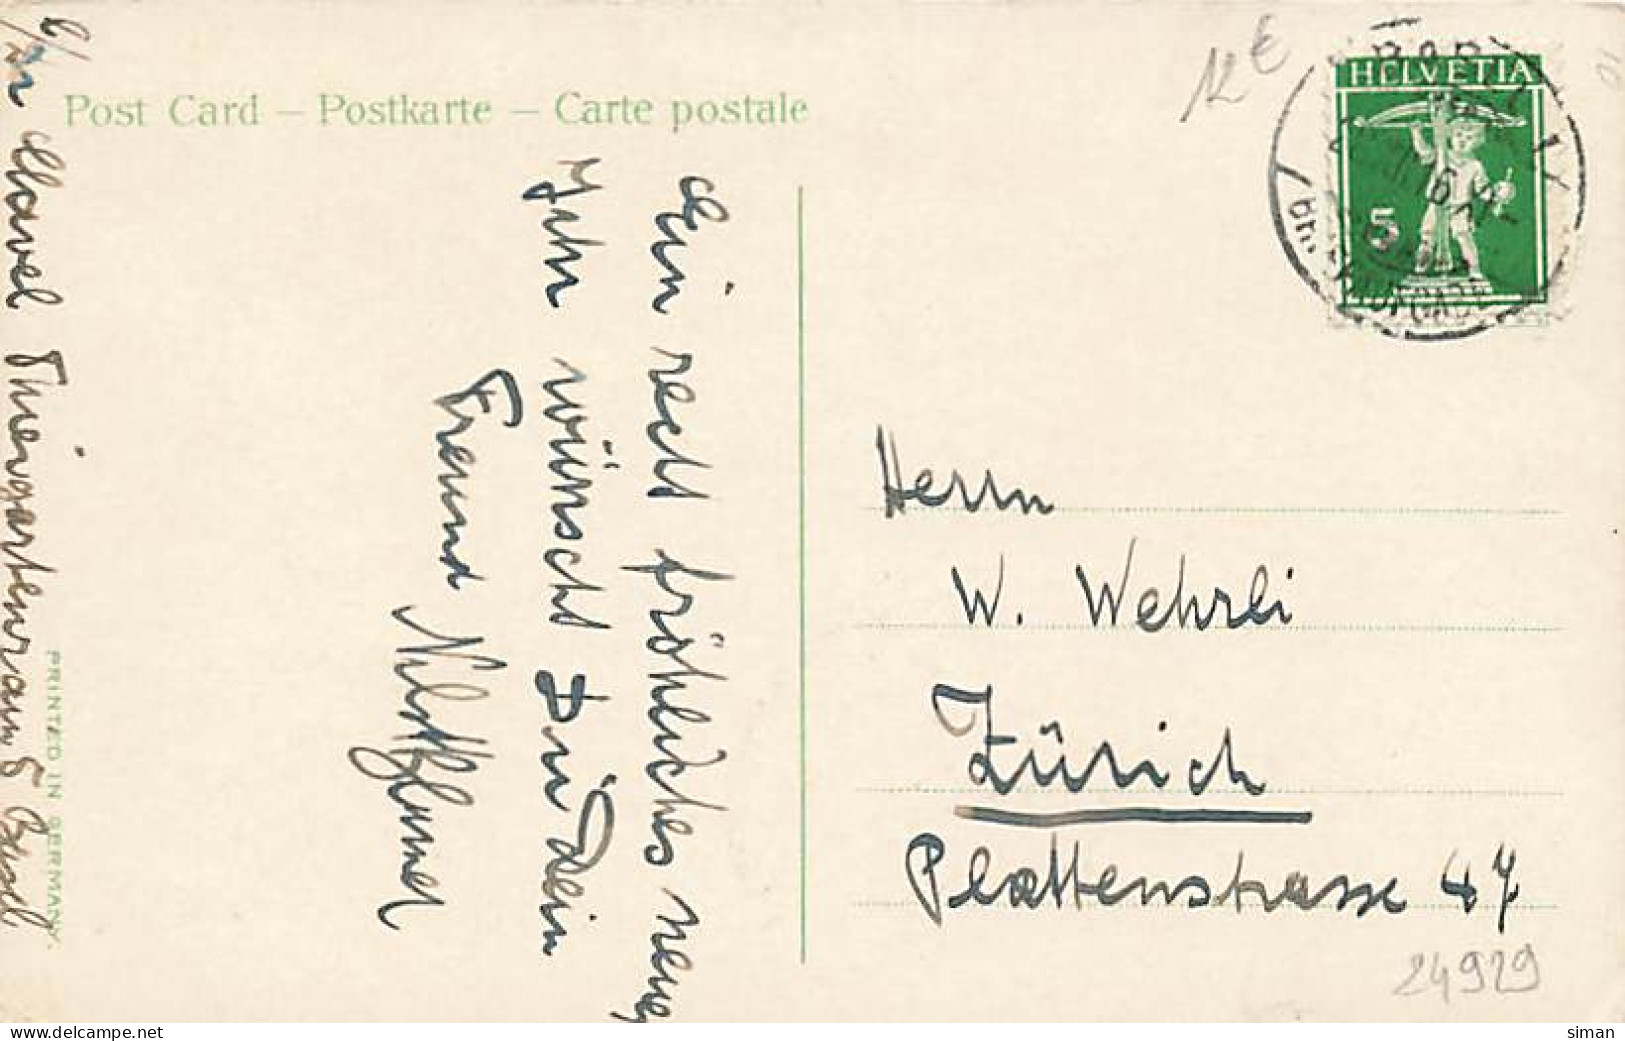 Post Card – Postkarte – Carte postale
Ein recht fröhliches neues
Jahr wünscht Dir Dein
Freund
Thiergartenrain 5 Basel
PRINTED IN GERMANY.
12 €
HELVETIA
5
Herrn
W. Wehrli
Zürich
Plattenstrasse 47
24929
www.delcampe.net
siman